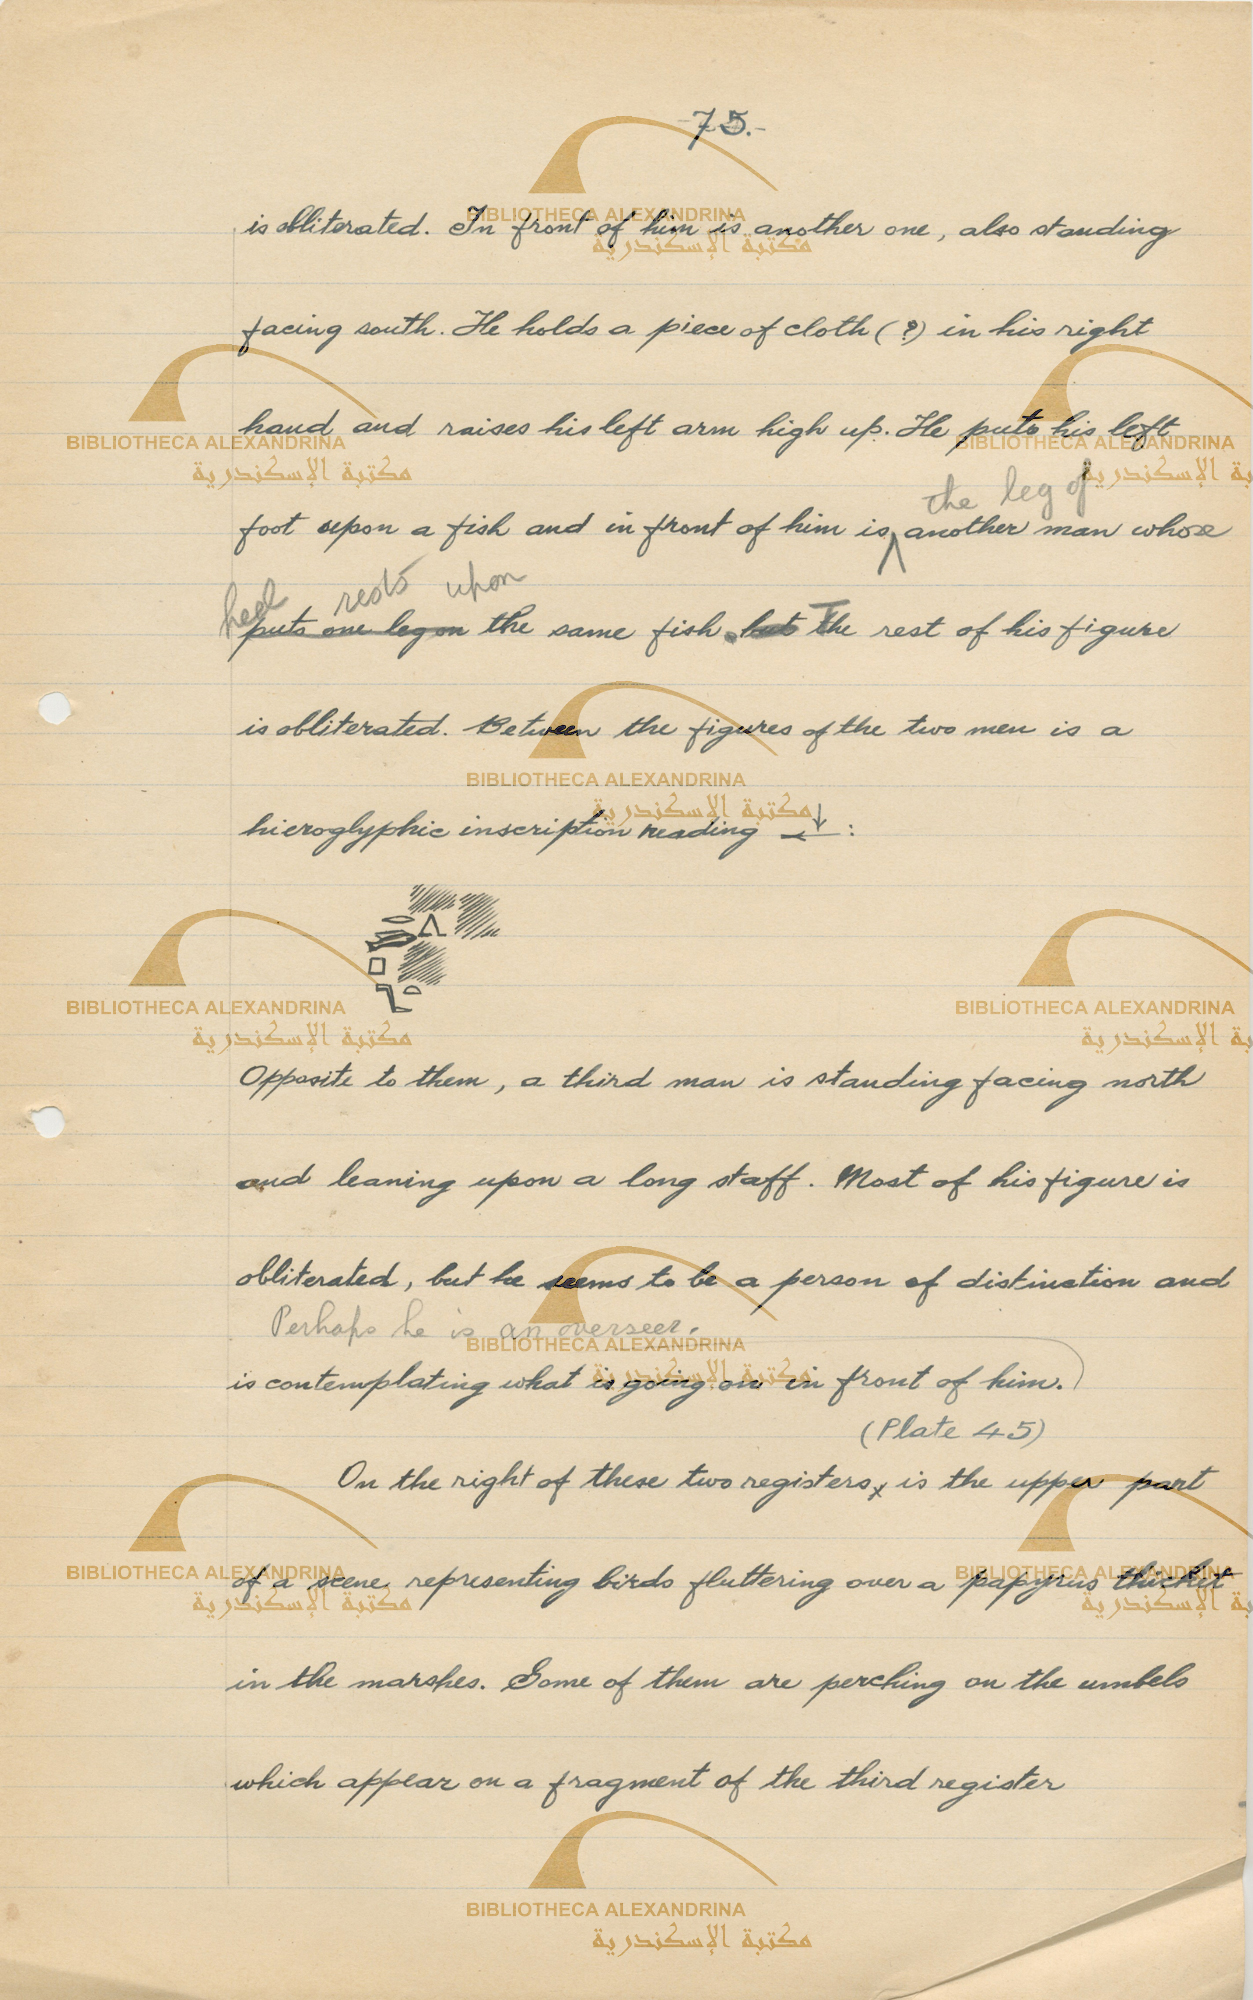 -75.-
is obliterated. In front of him is another one, also standing
facing south. He holds a piece of cloth (?) in his right
hand and raises his left arm high up. He puts his left
the leg of
foot upon a fish and in front of him is another man whose
heel rests upon
puts one leg on the same fish. but The rest of his figure
is obliterated. Between the figures of the two men is a
hieroglyphic inscription reading ←↓ :
Opposite to them, a third man is standing facing north
and leaning upon a long staff. Most of his figure is
obliterated, but he seems to be a person of distinction and
Perhaps he is an overseer.
is contemplating what is going on in front of him.
(Plate 45)
On the right of these two registers x is the upper part
of a scene representing birds fluttering over a papyrus thicket
in the marshes. Some of them are perching on the umbels
which appear on a fragment of the third register
BIBLIOTHECA ALEXANDRINA
مكتبة الإسكندرية